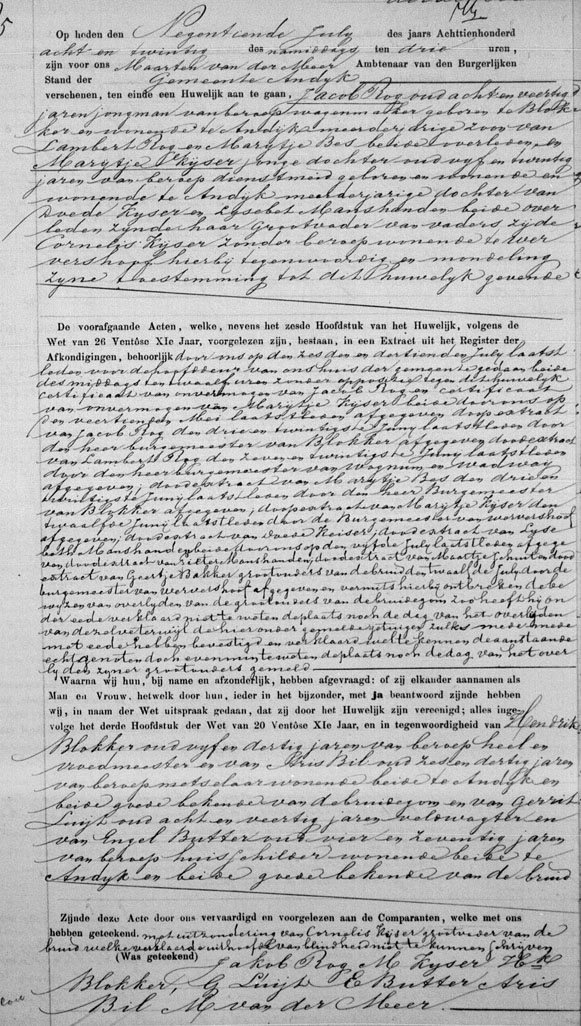 Op heden den Negentiende July des jaars Achttienhonderd
acht en twintig des namiddags ten drie uren,
zijn voor ons Maarten van der Meer Ambtenaar van den Burgerlijken
Stand der Gemeente Andyk
verschenen, ten einde een Huwelijk aan te gaan, Jacob Rog oud acht en veertig
jaren jongman van beroep wagenmaker geboren te Blok
ker en wonende te Andyk meerderjarige zoon van
Lambert Rog en Marytje Bes beide overleden en
Marytje Kyser jonge dochter oud vyf en twintig
jaren van beroep dienstmeid geboren en wonende en
wonende te Andyk meerderjarige dochter van
Dvede Kyser en Lysebet Manshanden beide over
leden zynde haar Grootvader van vaders zyde
Cornelis Kyser zonder beroep wonende te Wer
vershoof hierbij tegenwoordig en mondeling
zyne toestemming tot dit huwelyk gevende
De voorafgaande Acten, welke, nevens het zesde Hoofdstuk van het Huwelijk, volgens de
Wet van 26 Ventôse XIe Jaar, voorgelezen zijn, bestaan, in een Extract uit het Register der
Afkondigingen, behoorlijk door ons op den zesden en dertienden July laatst
leden voor de hoofddeur van ons huis der gemeente gedaan beide
des middags ten twaalf uren zonder oppositie tegen dit huwelyk
certificaat van onvermogen van Jacob Rog en certificaat
van onvermogen van Marytje Kyser beide door ons op
den veertienden Mei laatstleden afgegeven doopextract
van Jacob Rog den drie en twintigste Juny laatstleden door
den heer burgemeester van Blokker afgegeven doodextract
van Lambert Rog den zeven en twintigste Juny laatstleden
door den heer burgemeester van Wognum en Wadway
afgegeven, doodextract van Marytje Bes den drie en
twintigste Juny laatstleden door den heer Burgemeester
van Blokker afgegeven, doopextract van Marijtje Kyser den
twaalfde Junij laatstleden door de Burgemeester van Wervershoof
afgegeven; doodextract van Dvede Keiser; doodextract van Lyse
beth Manshanden beide door ons op den vyfde July laatstleden afgege
ven, doodextract van Pieter Manshanden, doodextract van Maartje Schuit en dood
extract van Geertje Bakker grootouders van de bruid den twaalfde July door de
burgemeester van Wervershoof afgegeven en vermits hierbij ontbreken de be
wyzen van overlyden van de grootouders van de bruidegom zoo heeft hij on
der eede verklaard niet te weten de plaats noch de dag van het overlyden
van dezelve terwyl de hieronder gemelde getuigen zulks mede
met eede hebben bevestigd en verklaard wel te kennen de aanstaande
echtgenoten doch evenmin te weten de plaats noch de dag van het over
lyden zyner grootouders gemeld
Warna wij hun, bij name en afzonderlijk, hebben afgevraagd: of zij elkander aannamen als
Man en Vrouw, hetwelk door hun, ieder in het bijzonder, met ja beantwoord zijnde hebben
wij, in naam der Wet uitspraak gedaan, dat zij door het Huwelijk zijn vereenigd; alles inge-
volge het derde Hoofdstuk der Wet van 20 Ventôse XIe Jaar, en in tegenwoordigheid van Hendrik
Blokker oud vyf en dertig jaren van beroep heel en
vroedmeester en van Aris Bil oud zes en dertig jaren
van beroep metselaar wonende beide te Andyk en
beide goede bekende van de bruidegom en van Gerrit
Luijt oud acht en veertig jaren veldwagter en
van Engel Butter oud vier en zeventig jaren
van beroep huisschilder wonende beide te
Andyk en beide goede bekende van de bruid
Zijnde deze Acte door ons vervaardigd en voorgelezen aan de Comparanten, welke met ons
hebben geteekend. met uitzondering van Cornelis Kyser grootvader van de
bruid welke verklaarde uit hoofde van blindheid niet te kunnen schrijven
(Was geteekend) Jakob Rog M Kyser Hk
Blokker, G Luijt E Butter Aris
Bil M van der Meer.